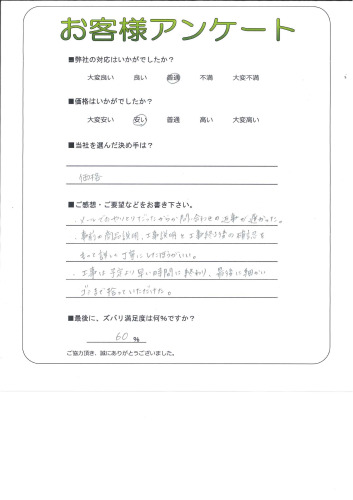 お客様アンケート
■弊社の対応はいかがでしたか?
大変良い 良い 普通 不満 大変不満
■価格はいかがでしたか?
大変安い 安い 普通 高い 大変高い
■当社を選んだ決め手は?
価格
■ご感想・ご要望などをお書き下さい。
・メールでのやりとりだったからか問い合わせの返事が遅かった。
・事前の商品説明、工事説明と工事終了後の確認を
もって詳しく丁寧にしたほうがいい。
・工事は予定より早い時間に終わり、最後に細かい
ゴミまで拾っていただけた。
■最後に、ズバリ満足度は何%ですか?
60 %
ご協力頂き、誠にありがとうございました。